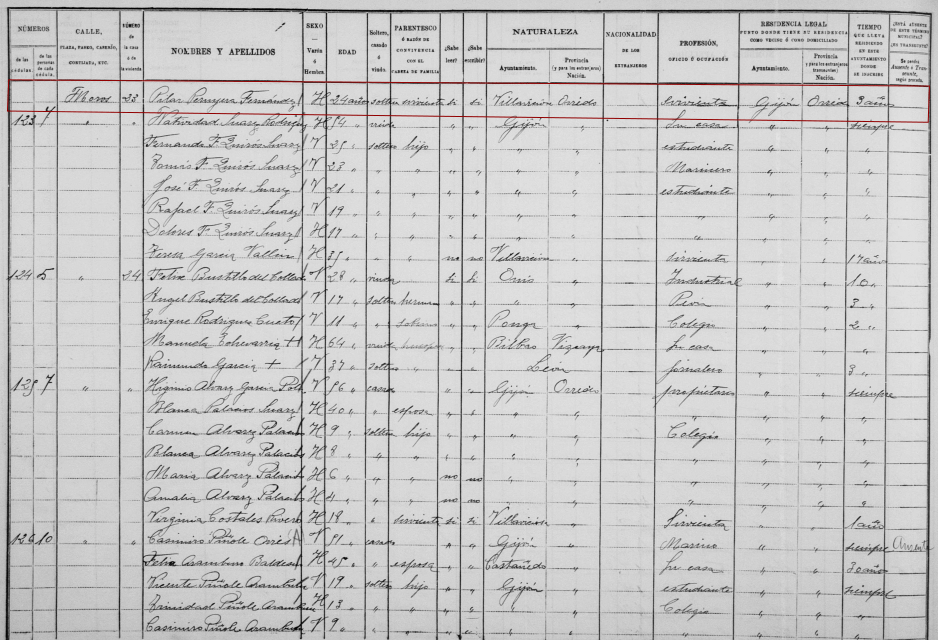 NÚMEROS
de las cédulas
de las personas de cada cédula.
CALLE,
PLAZA, PASEO, CASERÍO,
CORTIJADA, ETC.
NÚMERO
de la casa
ó de la
vivienda
NOMBRES Y APELLIDOS
SEXO
Varón
ó
Hembra.
EDAD
Soltero,
casado
ó
viudo.
PARENTESCO
Ó RAZÓN DE
CONVIVENCIA
CON EL
CABEZA DE FAMILIA
¿Sabe
leer?
¿Sabe
escribir?
NATURALEZA
Ayuntamiento.
Provincia
(y para los extranjeros)
Nación.
NACIONALIDAD
DE LOS
EXTRANJEROS
PROFESIÓN,
OFICIO Ú OCUPACIÓN
RESIDENCIA LEGAL
PUNTO DONDE TIENE SU RESIDENCIA
COMO VECINO Ó COMO DOMICILIADO
Ayuntamiento.
Provincia
Nación.
TIEMPO
QUE LLEVA
RESIDIENDO
EN ESTE
AYUNTAMIENTO
DONDE
SE INSCRIBE.
¿ESTÁ AUSENTE
DE ESTE TÉRMINO
MUNICIPAL?
¿EN TRANSEUNTE?
Moros 23 Pilar Fernández H 24 años soltera sirvienta si si Villavicion Oviedo sirvienta Gijón Oviedo 3 años
123 7 " " Natividad Suarez Rodriguez H 54 " viuda " " Gijón " Su casa " " siempre
Fernando F. Quirós Suarez V 25 " soltero hijo " " " " estudiante " " "
Tomás F. Quirós Suarez V 23 " " " " " " " Marinero " " "
José F. Quirós Suarez V 21 " " " " " " " estudiante " " "
Rafael F. Quirós Suarez V 19 " " " " " " " " " " "
Dolores F. Quirós Suarez H 17 " " " " " " " " " " "
Teresa Garcia Vallin H 35 " " " no no Villavicion " Sirvienta " " 17 año
124 5 " 24 Felix Bustillo del Collado V 28 " viudo si si Onis " Industrial " " 10 "
Angel Bustillo del Collado V 17 " soltero hermano " " " " " " 3 "
Enrique Rodriguez Cueto V 11 " " sobrino " " Ponga " Colegio " " 2 "
Manuela Echevarria H 64 " viuda " " Bilbao Vizcaya Su casa " " "
Raimundo Garcia V 37 " soltero " " " Leon jornalero " " 3 "
125 7 " " Higinio Alvarez Garcia V 56 " casado " " Gijón Oviedo propietario " " siempre
Blanca Palacios Suarez H 40 " " esposa " " " " " " " "
Carmen Alvarez Palacios H 9 " soltera hija " " " " Colegio " " "
Blanca Alvarez Palacios H 8 " " " " " " " " " " "
Maria Alvarez Palacios H 6 " " " no no " " " " " "
Amalia Alvarez Palacios H 4 " " " no no " " " " " "
Virginia Costales H 19 " " sirvienta si si Villaviciosa " Sirvienta " " 1 año
126 10 " " Casimiro Piñole V 51 " casado " " Gijón " Marino " " siempre Ausente
Aramburu H 45 " " esposa " " Castañedo " Su casa " " 30 año
Vicente Piñole Aramburu V 19 " soltero hijo " " Gijón " estudiante " " siempre
Trinidad Piñole Aramburu H 13 " " " " " " " Colegio " " "
Casimiro Piñole Aramburu V 9 " " " " " " " " " " "